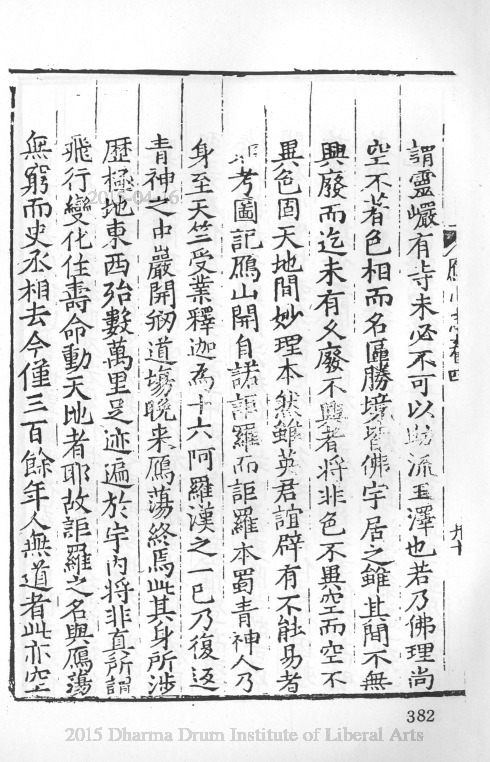 謂靈巗有寺未必不可以助流玉澤也若乃佛理尚
空不着色相而名區勝境皆佛宇居之雖其間不無
興廢而迄未有久廢不興者將非色不異空而空不
異色固天地間妙理本然雖英君誼辟有不能易者
考圖記鴈山開自諾詎羅而詎羅本蜀青神人乃
身至天竺受業釋迦為十六阿羅漢之一已乃復返
青神之中巖開剏道塲晚来鴈蕩終焉此其身所涉
歴極地東西殆數萬里足迹遍於宇内將非真所謂
飛行變化住壽命動天地者耶故詎羅之名與鴈蕩
無窮而史丞相去今僅三百餘年人無道者此亦空
鴈山志卷四
九十
382
2015-04-16
2015 Dharma Drum Institute of Liberal Arts